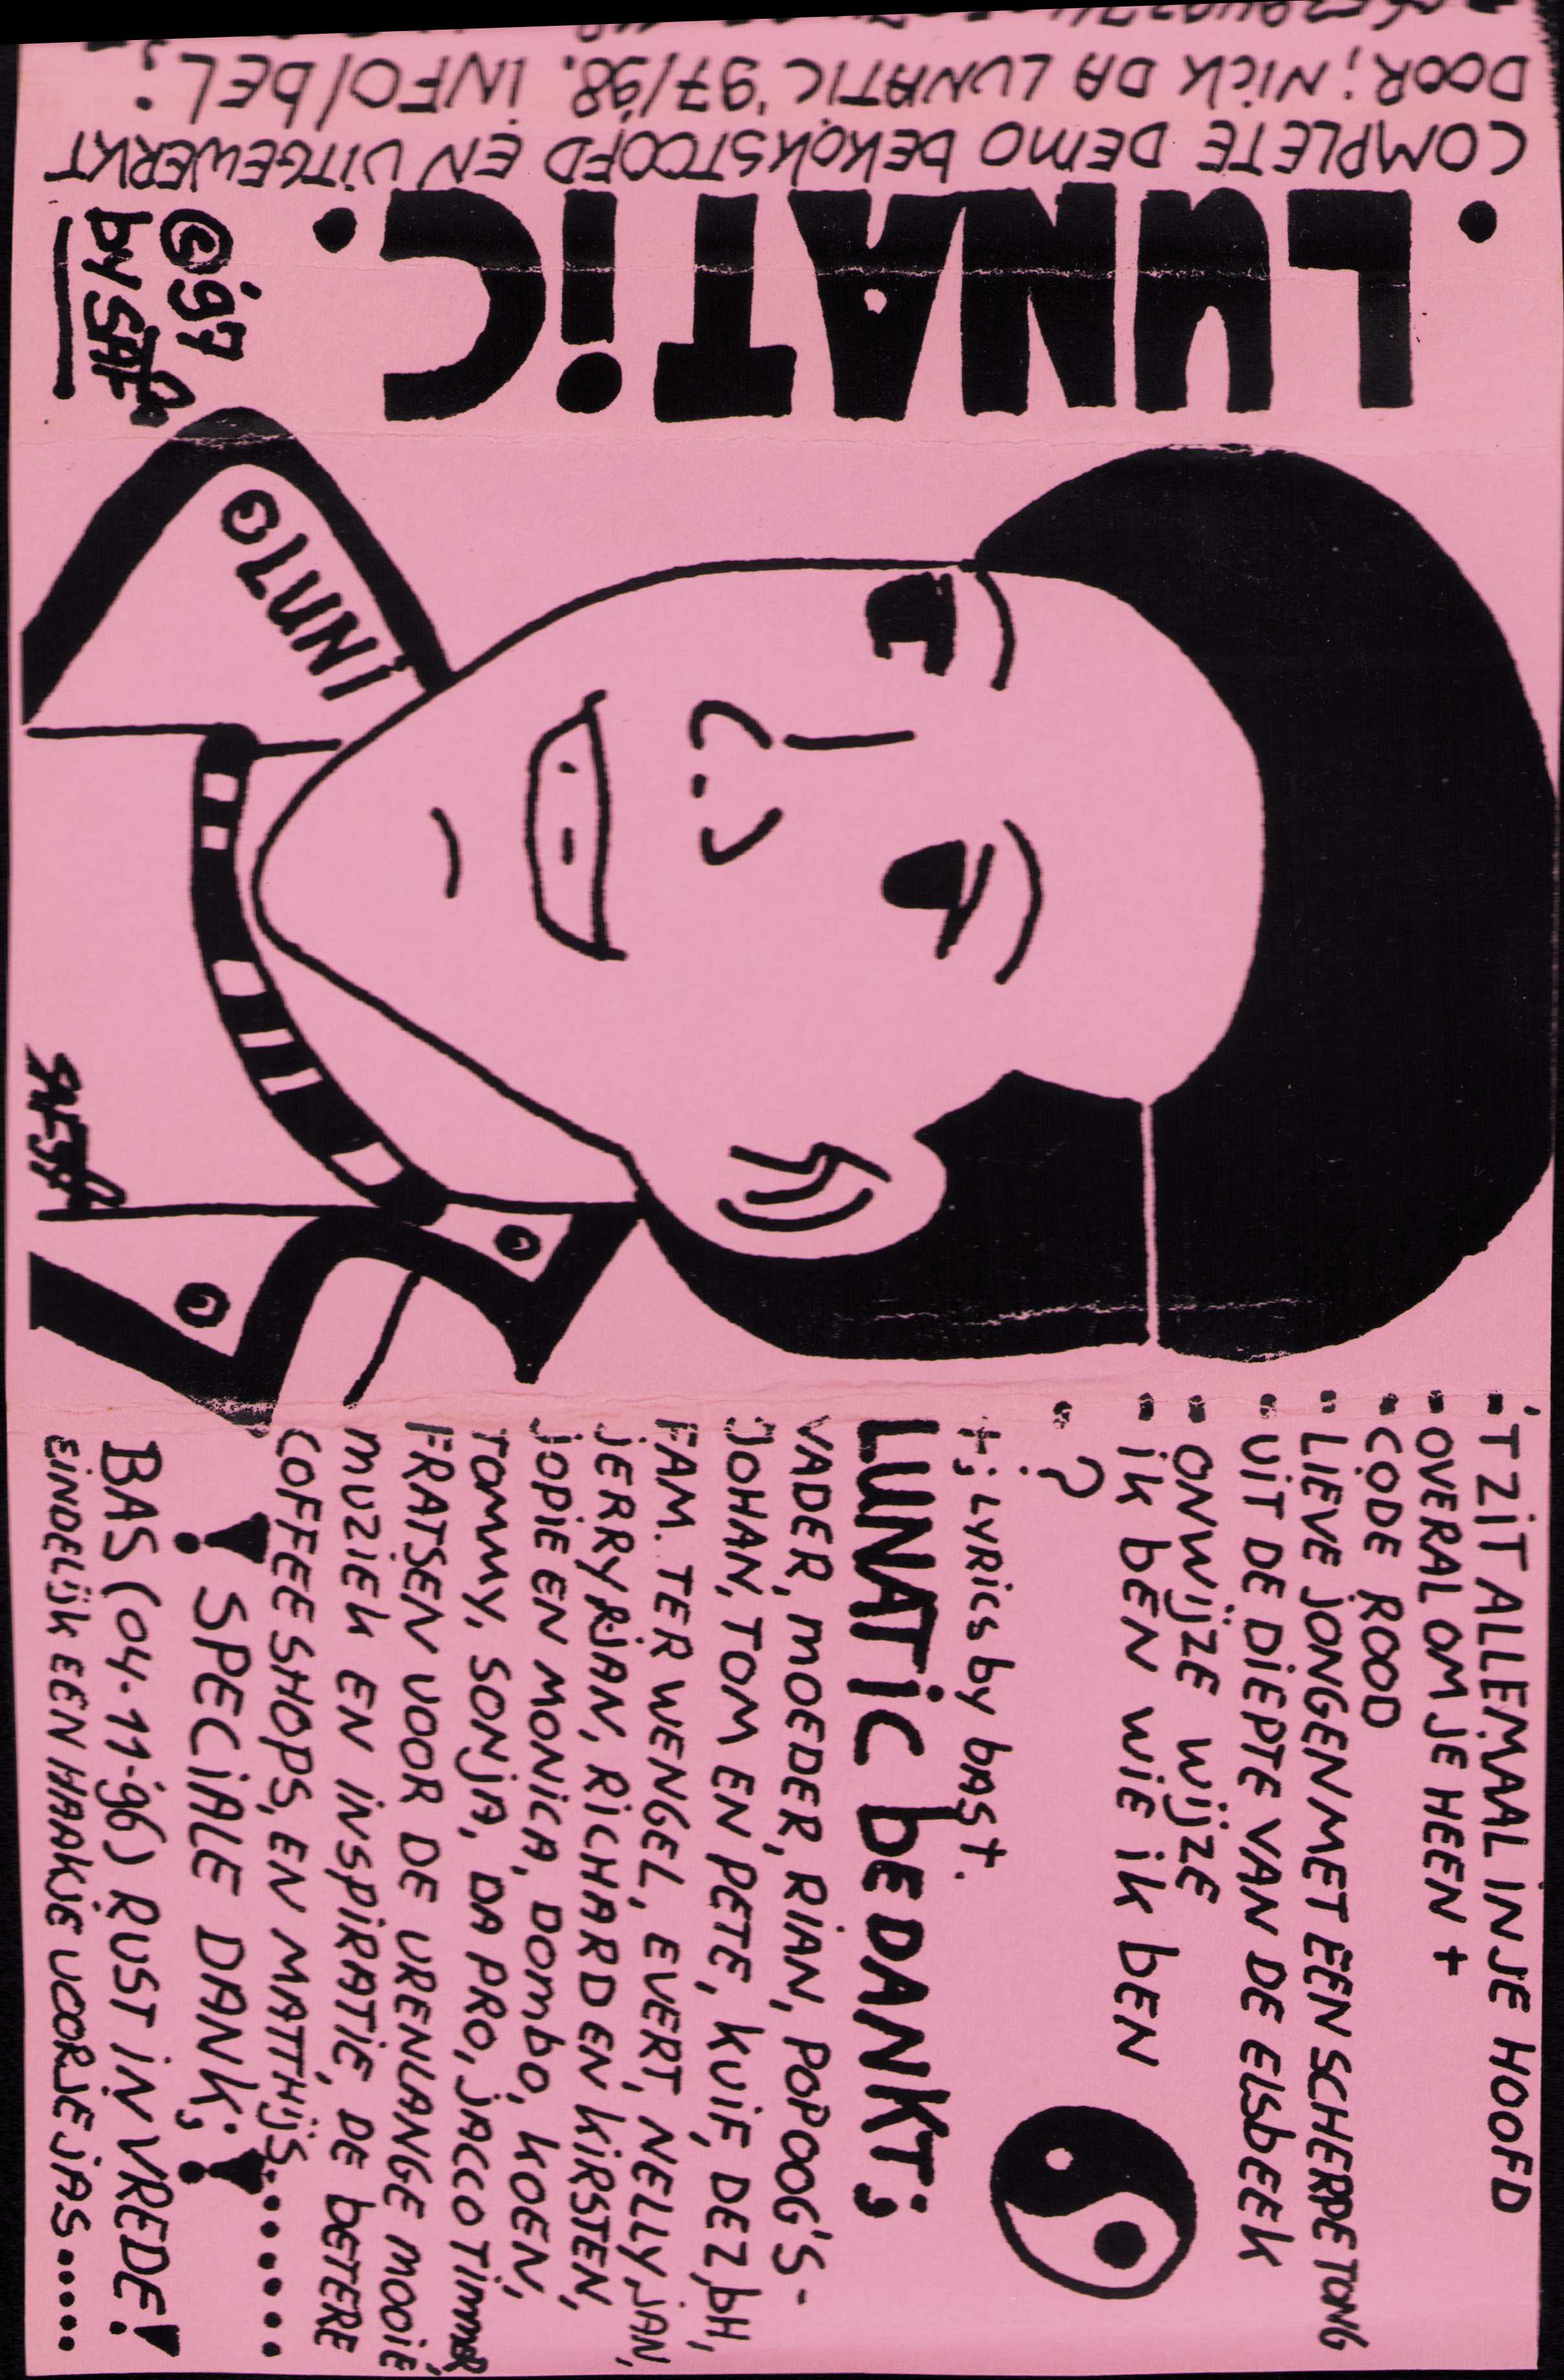 COMPLETE DEMO BEKOKSTOOFD EN UITGEWERKT
DOOR; NICK DA LUNATIC '97/'98. INFO/BEL:
. LUNATIC.
©'97
by SAF
INNTO
'T ZIT ALLEMAAL IN JE HOOFD
OVERAL OM JE HEEN +
CODE ROOD
LIEVE JONGEN MET EEN SCHERPE TONG
UIT DE DIEPTE VAN DE ELSBEEK
ONWIJZE WIJZE
IK BEN WIE IK BEN
?
+; LYRICS by bAS+.
LUNATIC BEDANKT;
VADER, MOEDER, RIAN, POPOOG'S-
JOHAN, TOM EN PETE, KUIF, DEZ, bH,
FAM. TER WENGEL, EVERT, NELLY, JAN,
JERRY RJAN, RICHARD EN KIRSTEN,
JOPIE EN MONICA, DOMBO, KOEN,
TOMMY, SONJA, DA PRO, JACCO TIMMER,
FRATSEN VOOR DE URENLANGE MOOIE
MUZIEK EN INSPIRATIE, DE BETERE
COFFEESHOPS, EN MATTHIJS........
! SPECIALE DANK; !
BAS (04-11-'96) RUST IN VREDE!
EINDELIJK EEN HAAKJE VOOR JE JAS.....